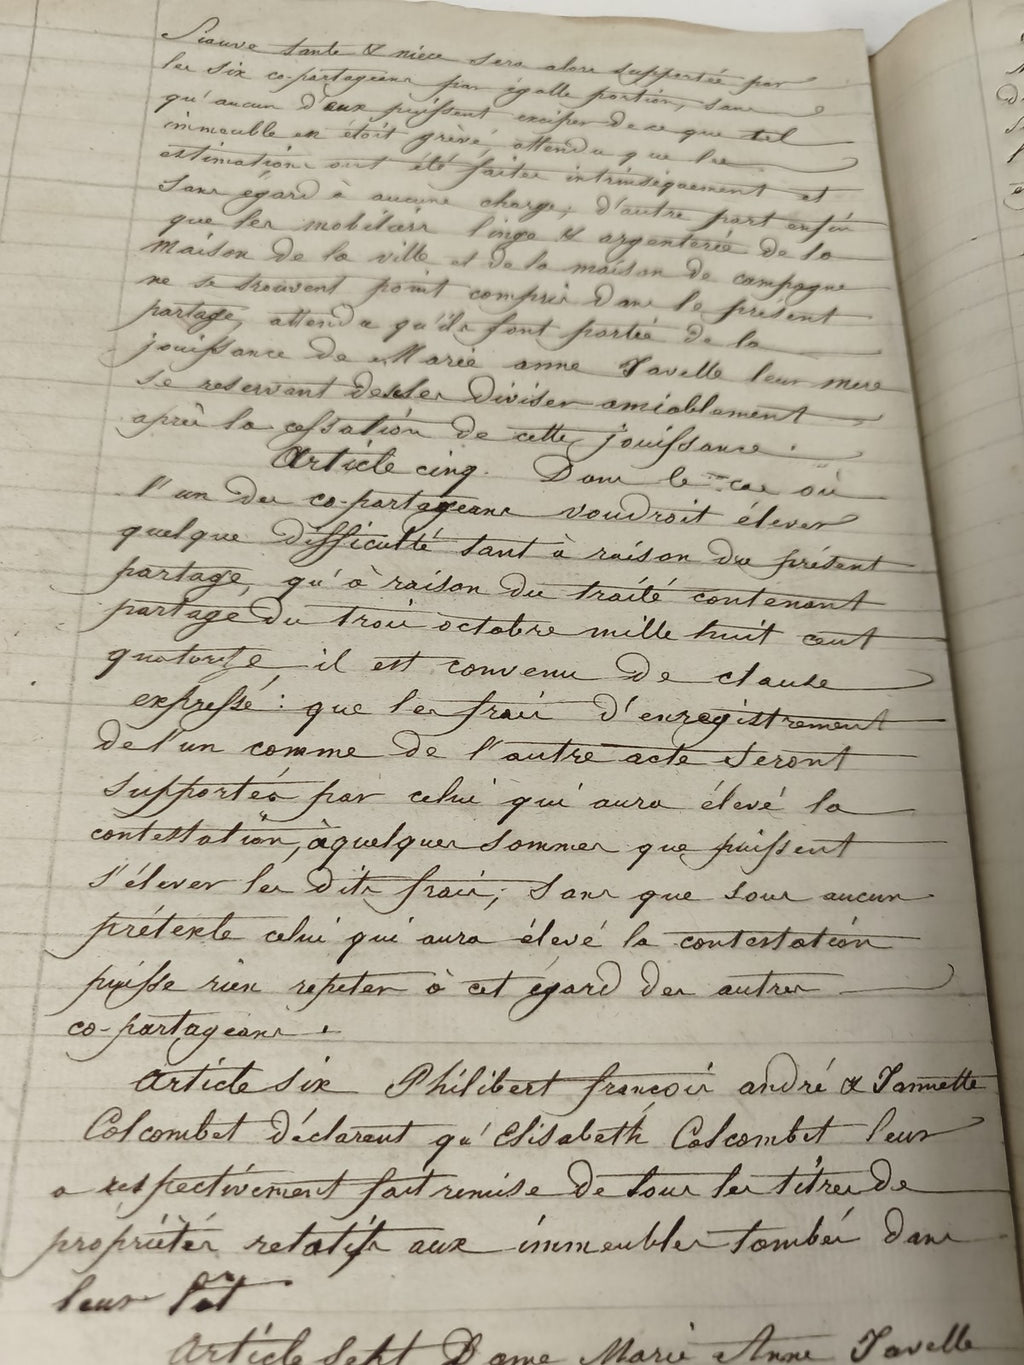 Siauve tante & niece sera alors supportée par
les six co-partageans par égalle portion, sans
qu'aucun d'eux puissent exciper de ce que tel
immeuble en étoit grévé, attendu que les
estimations ont été faites intrinséquement et
sans égard à aucune charge; d'autre part enfin
que les mobiliers linge & argenterie de la
maison de la ville et de la maison de campagne
ne se trouvent point compris dans le présent
partage, attendu qu'ils font partie de la
jouissance de Marie anne Javelle leur mere
se reservant de les diviser amiablement
après la cessation de cette jouissance.
Article cinq. Dans le cas où
l'un des co-partageans voudroit élever
quelque difficulté tant à raison du présent
partage, qu'à raison du traité contenant
partage du trois octobre mille huit cent
quatorze, il est convenu de clause
expresse: que les frais d'enregistrement
de l'un comme de l'autre acte seront
supportés par celui qui aura élevé la
contestation, à quelques sommes que puissent
s'élever les dits frais; sans que sous aucun
prétexte celui qui aura élevé la contestation
puisse rien repeter à cet égard des autres
co-partageans.
Article six Philibert françois andré & Jannette
Colcombet déclarent qu'Elisabeth Colcombet leur
a respectivement fait remise de tous les titres de
propriétés relatifs aux immeubles tombés dans
leur lot
Article sept Dame Marie Anne Javelle